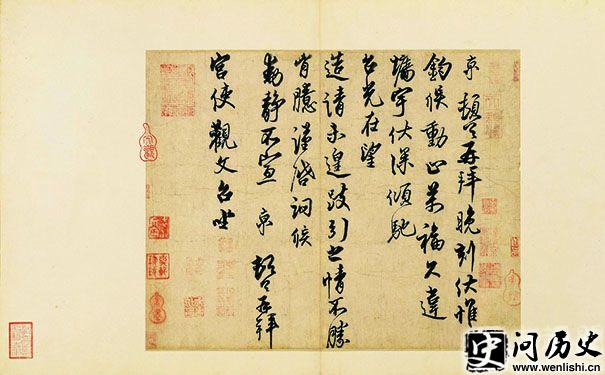 京頓首再拜晚刻伏惟
鈞候動止萬福久違
牆宇伏深傾馳
台光在望
造請未遑跂引之情不勝
胷臆謹啓詗候
動靜不宣 京 頓首再拜
宮使觀文台坐
史 问历史
www.wenlishi.cn